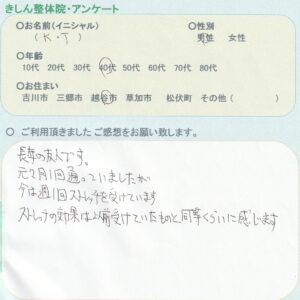 きしん整体院・アンケート
○お名前(イニシャル) ○性別
( K・T ) 男性 女性
○年齢
10代 20代 30代 40代 50代 60代 70代 80代
○お住まい
吉川市 三郷市 越谷市 草加市 松伏町 その他( )
○ ご利用頂きました ご感想をお願い致します。
長年の友人です。
元々月1回通っていましたが
今は週1回ストレッチを受けています
ストレッチの効果は以前受けていたものと同等くらいに感じます